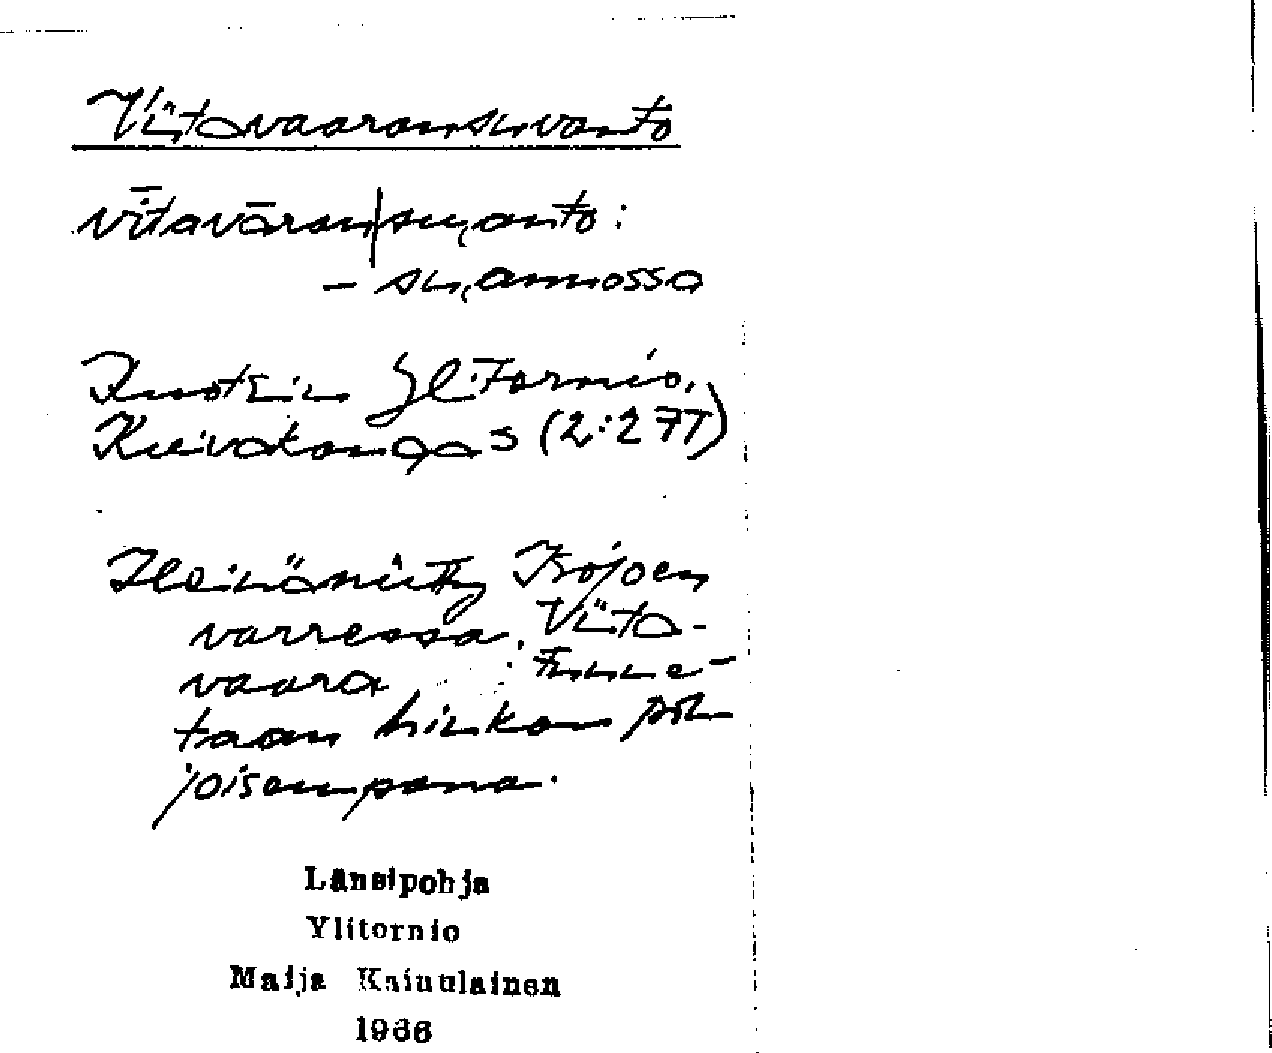 Viitavaaransuvanto
vītavāran|suu̯anto:
– suu̯annossa
Ruotsin Ylitornio,
Kuivakangas (2:277)
Heinäniitty Isojoen
varressa. Viita-
vaara tunne-
taan hiukan poh
joisempana.
Länsipohja
Ylitornio
Maija Kainulainen
1966